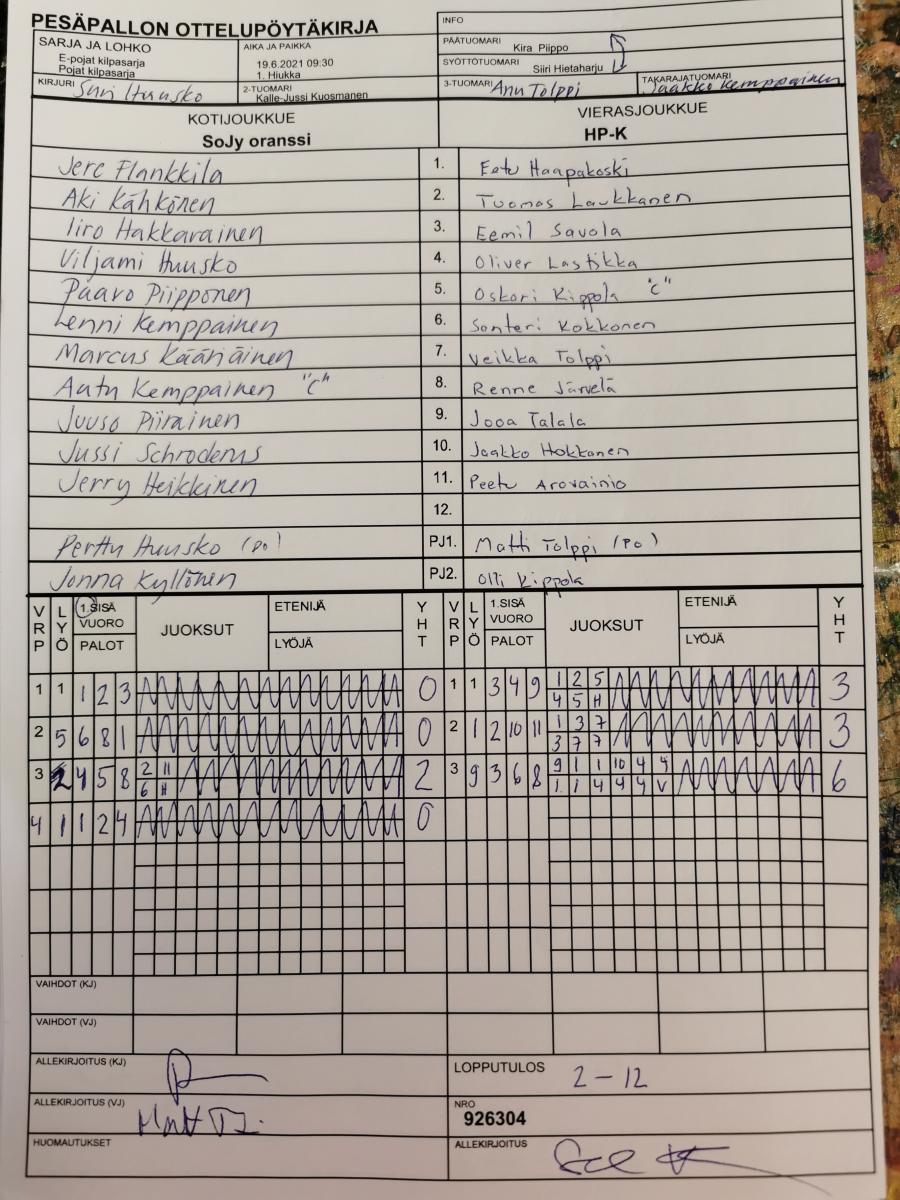 PESÄPALLON OTTELUPÖYTÄKIRJA
INFO
SARJA JA LOHKO
E-pojat kilpasarja
Pojat kilpasarja
AIKA JA PAIKKA
19.6.2021 09:30
1. Hiukka
PÄÄTUOMARI Kira Piippo
SYÖTTÖTUOMARI Siiri Hietaharju
KIRJURI Suvi Huusko
2-TUOMARI Kalle-Jussi Kuosmanen
3-TUOMARI Anu Tolppi
TAKARAJATUOMARI Jaakko Kemppainen
KOTIJOUKKUE
SoJy oranssi
VIERASJOUKKUE
HP-K
Jere Flankkila 1. Eetu Haapakoski
Aki Kähkönen 2. Tuomas Laukkanen
Iiro Hakkarainen 3. Eemil Savola
Viljami Huusko 4. Oliver Lastikka
Paavo Piipponen 5. Oskari Kippola "C"
Lenni Kemppainen 6. Santeri Kokkonen
Marcus Kääriäinen 7. Veikka Tolppi
Aatu Kemppainen "C" 8. Renne Järvelä
Juuso Piirainen 9. Jooa Talala
Jussi Schroderus 10. Jaakko Hokkanen
Jerry Heikkinen 11. Peetu Arovainio
12.
Perttu Huusko (po) PJ1. Matti Tolppi (po)
Jonna Kyllönen PJ2. Olli Kippola
VRP LYÖ 1.SISÄ VUORO PALOT JUOKSUT ETENIJÄ LYÖJÄ YHT VRP LYÖ 1.SISÄ VUORO PALOT JUOKSUT ETENIJÄ LYÖJÄ YHT
1 1 1 2 3 0 1 1 3 4 9 1 2 5 3
4 5 H
2 5 6 8 1 0 2 1 2 10 11 1 3 7 3
3 7 7
3 2 4 5 8 2 11 2 3 9 3 6 8 9 1 1 10 4 4 6
6 H 1 1 4 4 4 V
4 1 1 2 4 0
VAIHDOT (KJ)
VAIHDOT (VJ)
ALLEKIRJOITUS (KJ)
LOPPUTULOS 2 - 12
ALLEKIRJOITUS (VJ)
NRO
926304
HUOMAUTUKSET
ALLEKIRJOITUS